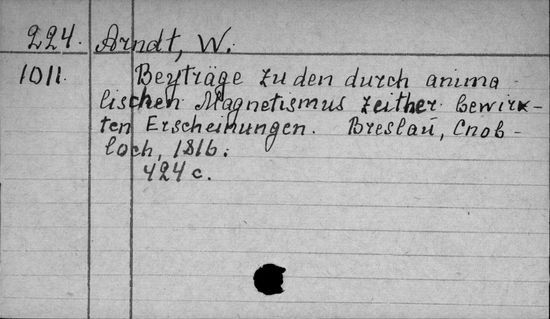 224. Arndt, W.
1011. Beyträge zu den durch anima-
lischen Magnetismus zeither bewirk-
ten Erscheinungen. Breslau, Cnob-
loch, 1816.
424 c.